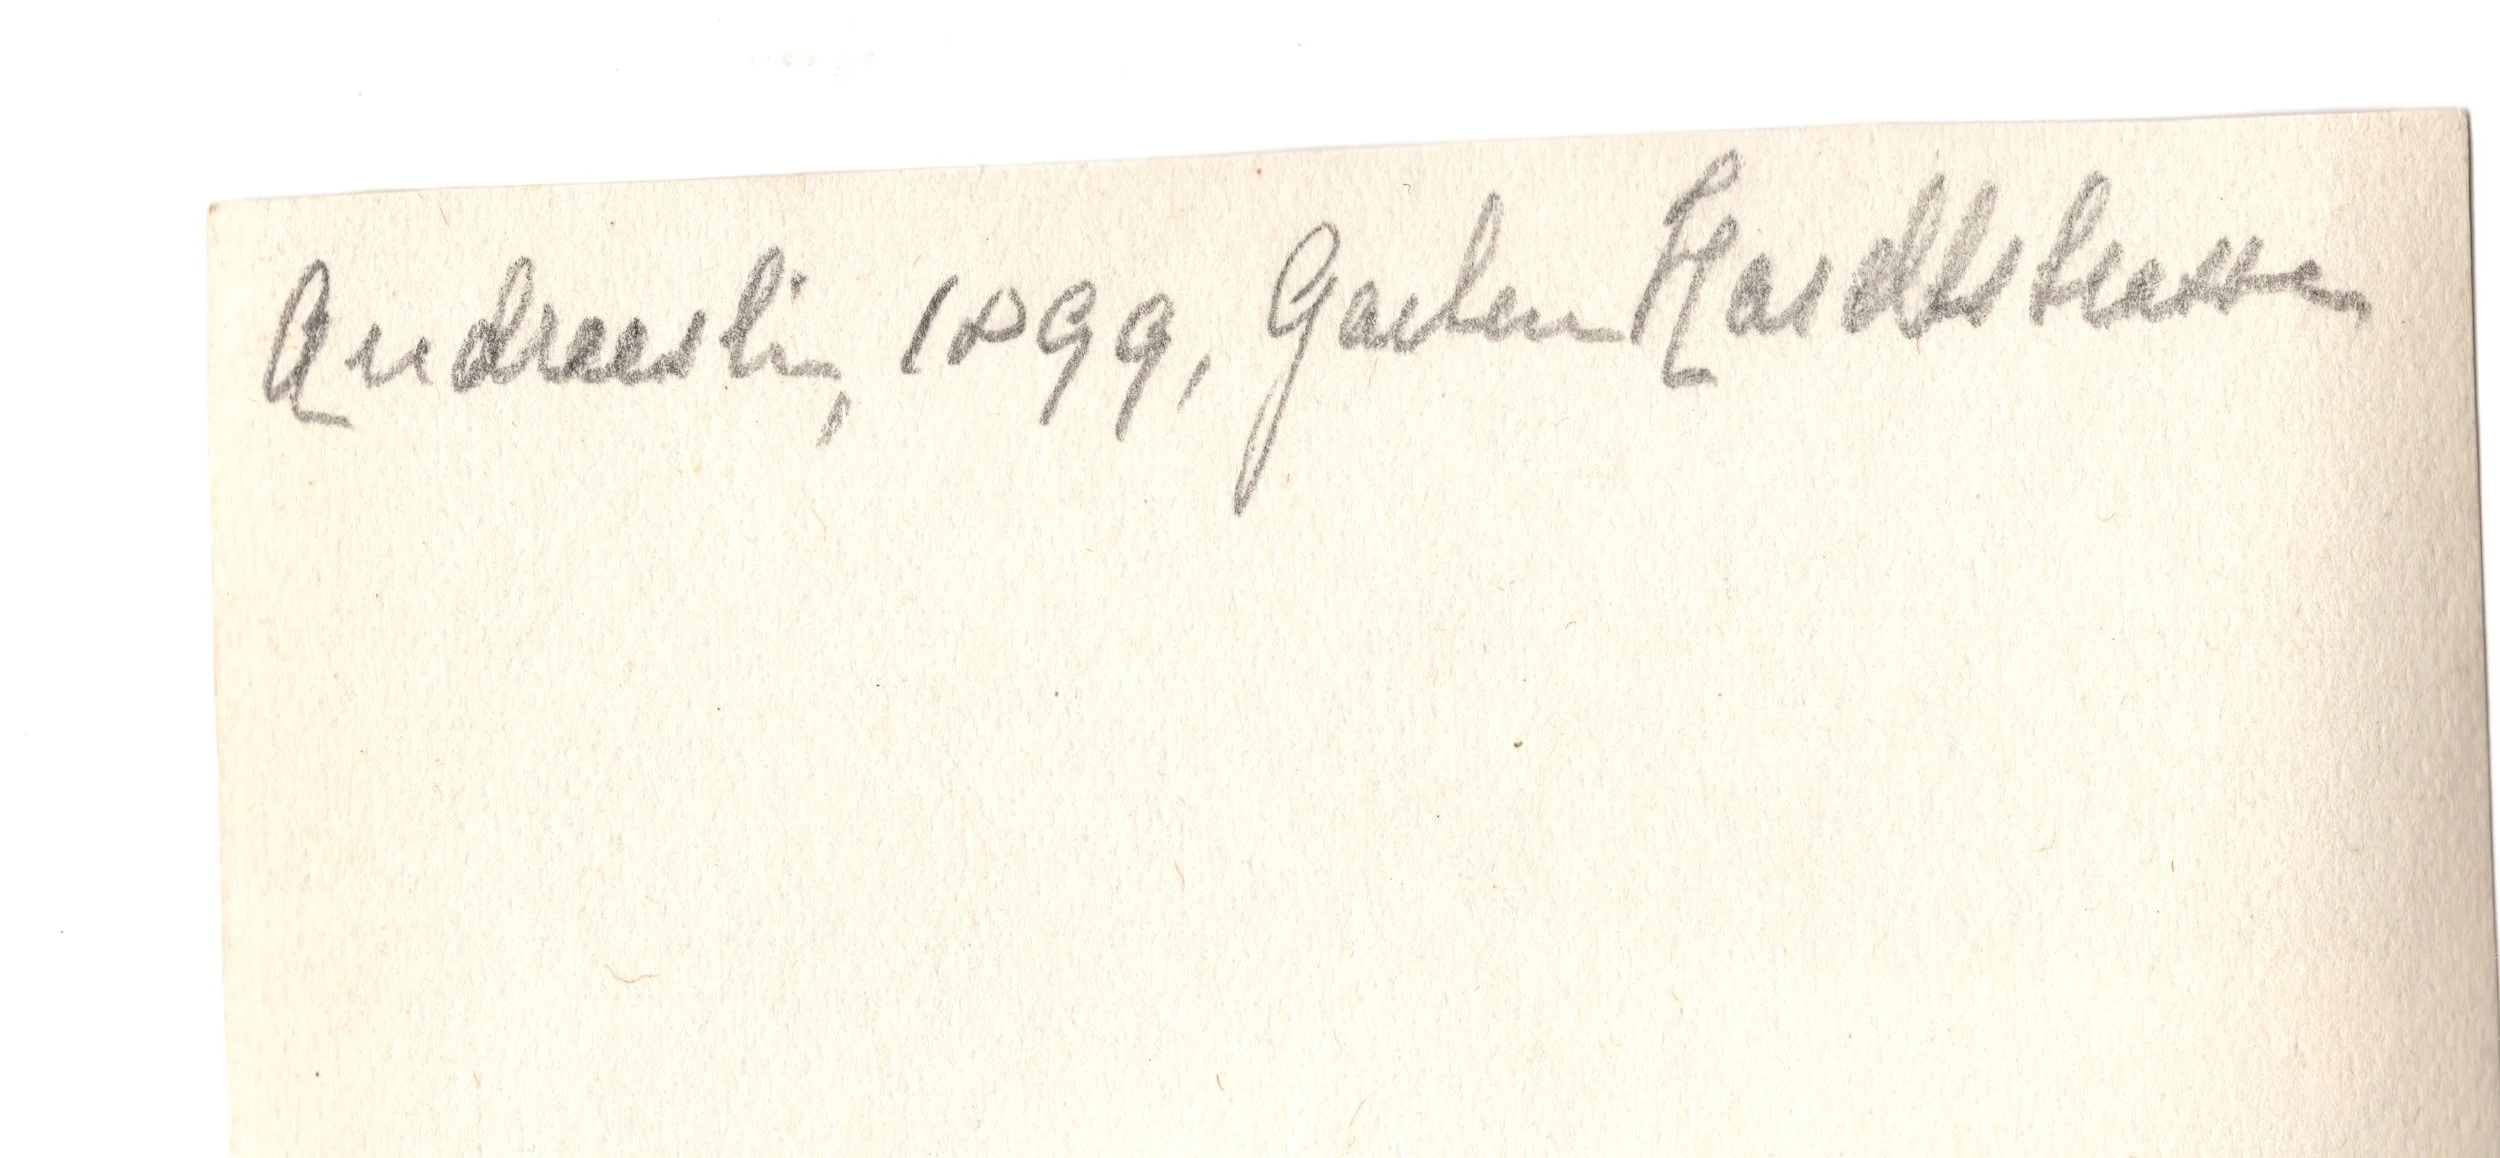 Andreesli, 1899, Garten Hardtstrasse